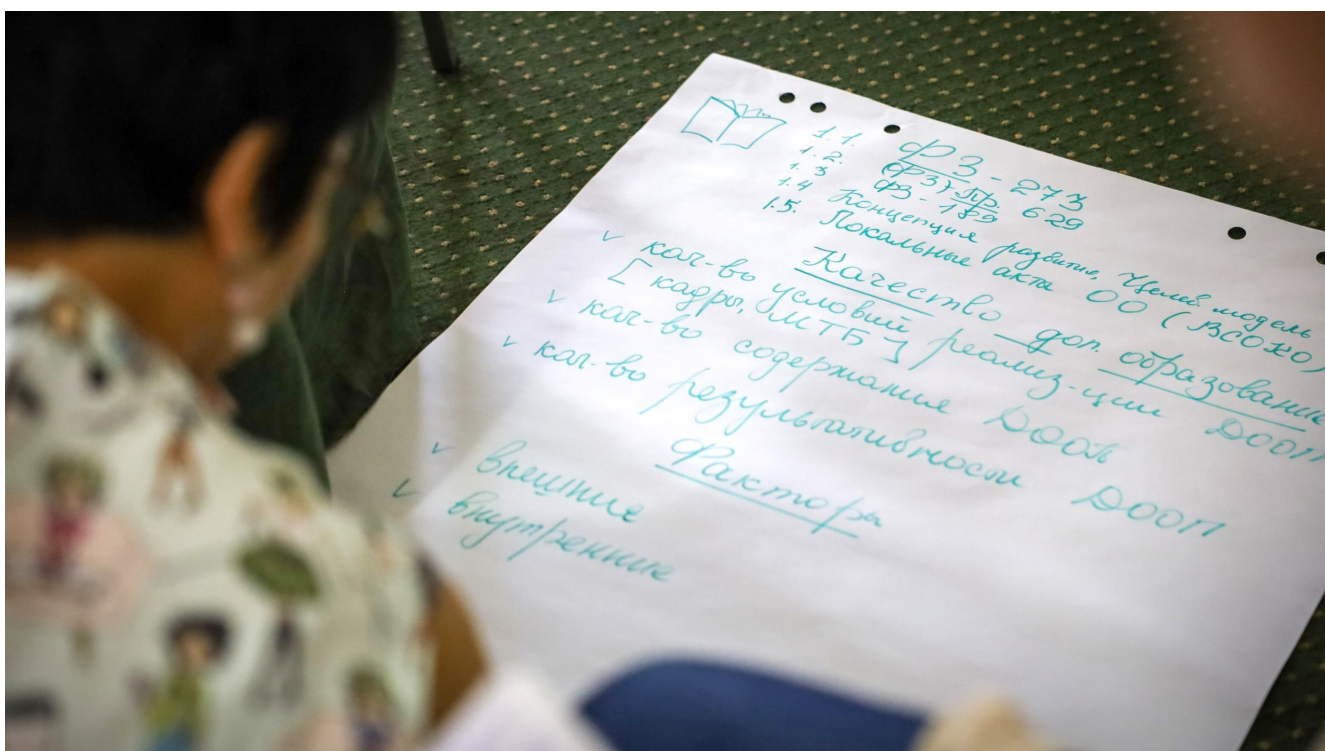 1.1. ФЗ - 273
1.2. (ФЗ). Пр. 629
1.3 ФЗ - 189
1.4 Концепция развития, Целев. модель
1.5. Локальные акта ОО (ВСОКО)
Качество доп. образования
v кол-во условий реализ-ции ДООП
[кадры, МТБ]
v кол-во содержания ДООП
v кол-во результативности ДООП
Факторы
v внешние
v внутренние